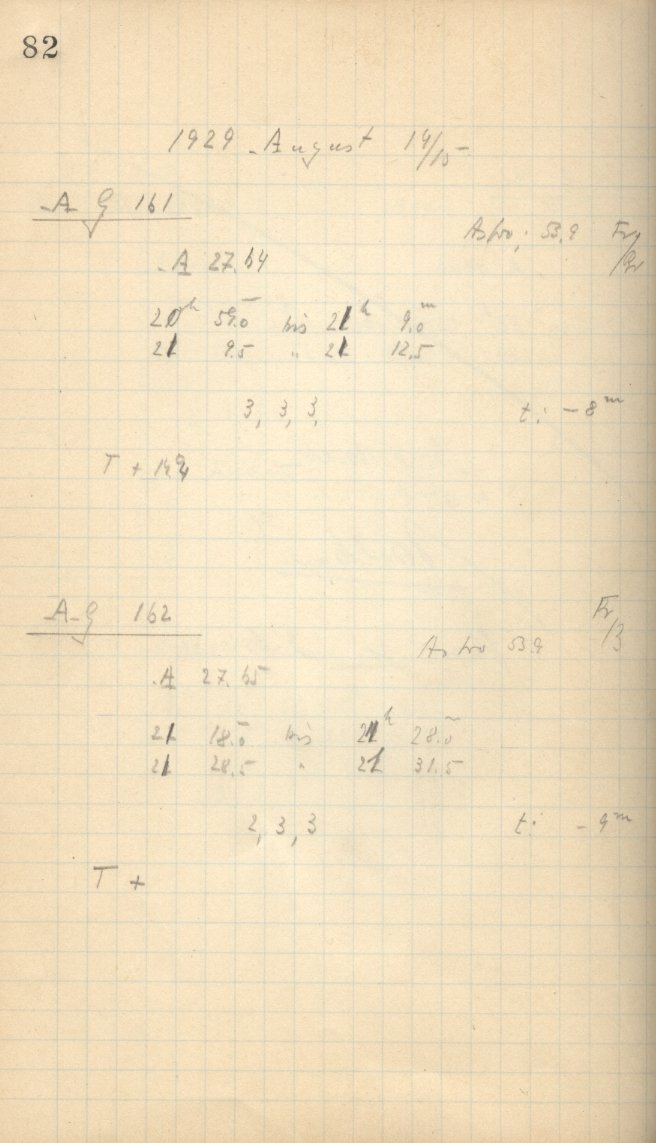 82
1929 August 14/15
A G 161
Astro: 53.9 Fr/Gr
A 27.64
20h 59.0m bis 21h 9.0m
21 9.5 " 21 12.5
3, 3, 3, t: -8m
T +
A G 162 Fr/B
Astro 53.9
A 27.65
21 18.0m bis 21h 28.0m
21 28.5 " 21 31.5
2, 3, 3 t: -9m
T +